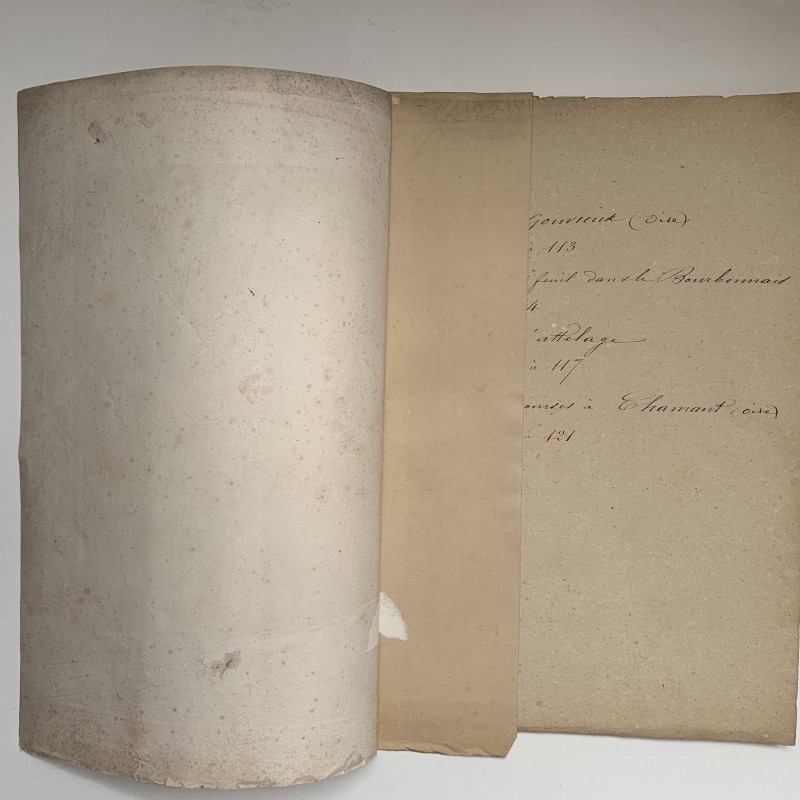 Gouvieux (Oise)
à 113
feuil dans le Bourbonnais
4
attelage
à 117
ourses à Chamant (Oise)
à 121